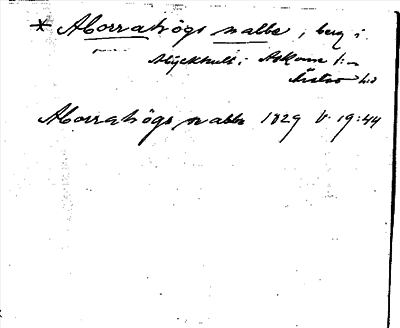 * Aborrahögs nabbe, berg i.
Myckhult i Askome s:n
Årstad h:d
Aborrahögs nabbe 1829 V. 19:44